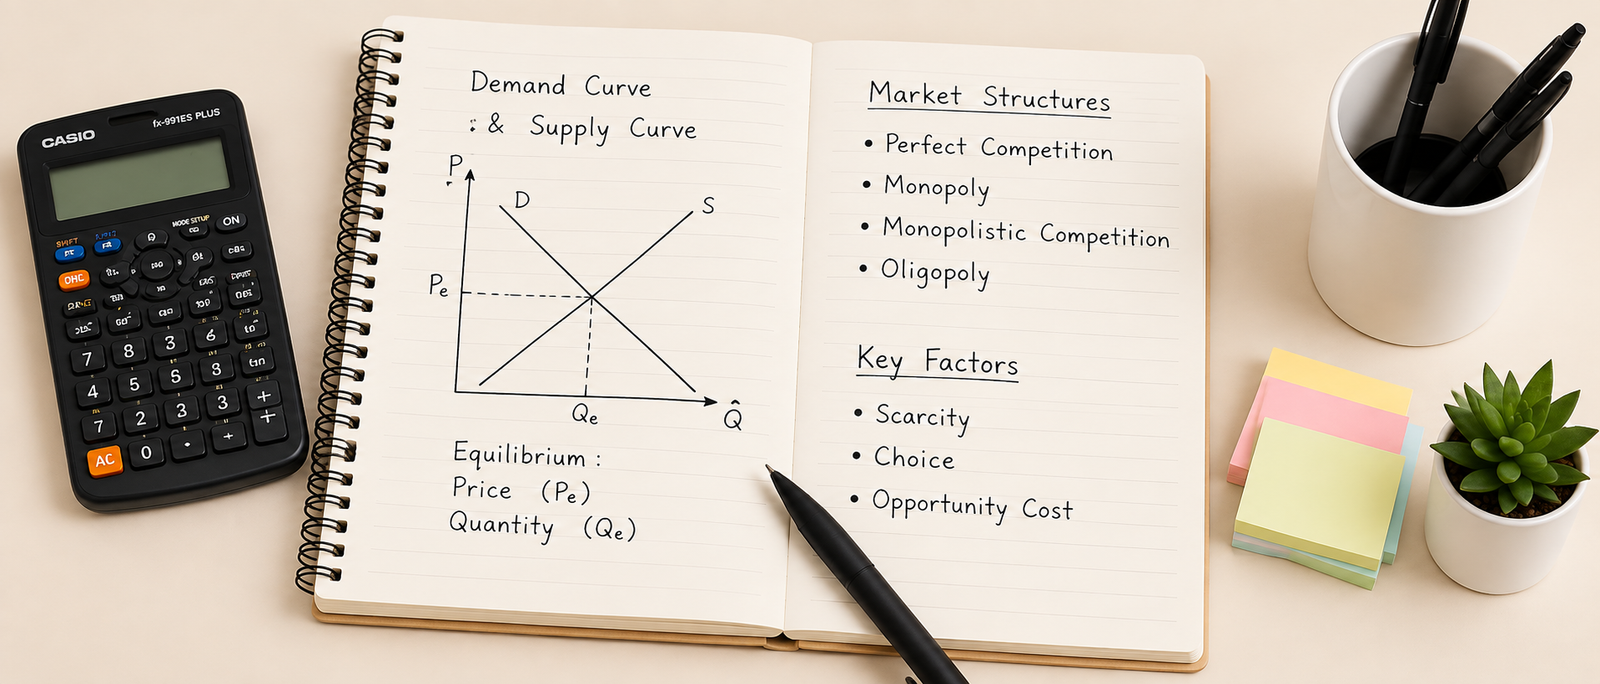 CASIO
fx-991ES PLUS
MODE SETUP
ON
SHIFT
7 8 3 6
4 5 6 8
7 2 3 3 +
AC 0 · + +
Demand Curve
: & Supply Curve
P
D
S
Pe
Qe
Q̂
Equilibrium :
Price (Pe)
Quantity (Qe)
Market Structures
• Perfect Competition
• Monopoly
• Monopolistic Competition
• Oligopoly
Key Factors
• Scarcity
• Choice
• Opportunity Cost